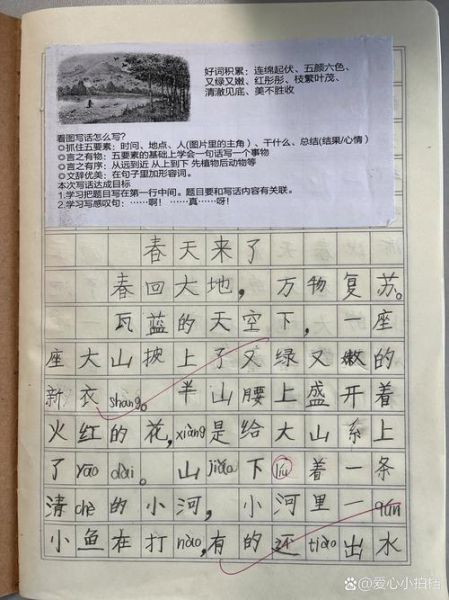 好词积累：连绵起伏、五颜六色、
又绿又嫩、红彤彤、枝繁叶茂、
清澈见底、美不胜收
看图写话怎么写？
◎抓住五要素：时间、地点、人(图片里的主角）、干什么、总结(结果/心情）
◎言之有物：五要素的基础上学会一句话写一个事物
◎言之有序：从远到近 从上到下 先植物后动物等
◎文辞优美：在句子里加形容词。
本次写话达成目标
1.学习把题目写在第一行中间。题目要和写话内容有关联。
2.学习写感叹句：……啊！ ……真……呀！
春天来了
春回大地，万物复苏。
瓦蓝的天空下，一座
座大山披上了又绿又嫩的
新衣shang。半山腰上盛开着
火红的花，xiàng是给大山系上
了yāo dài。山jiǎo下liú着一条
清chè的小河，小河里一qún
小鱼在打nào，有的还tiào出水
百家号/爱心小拍档